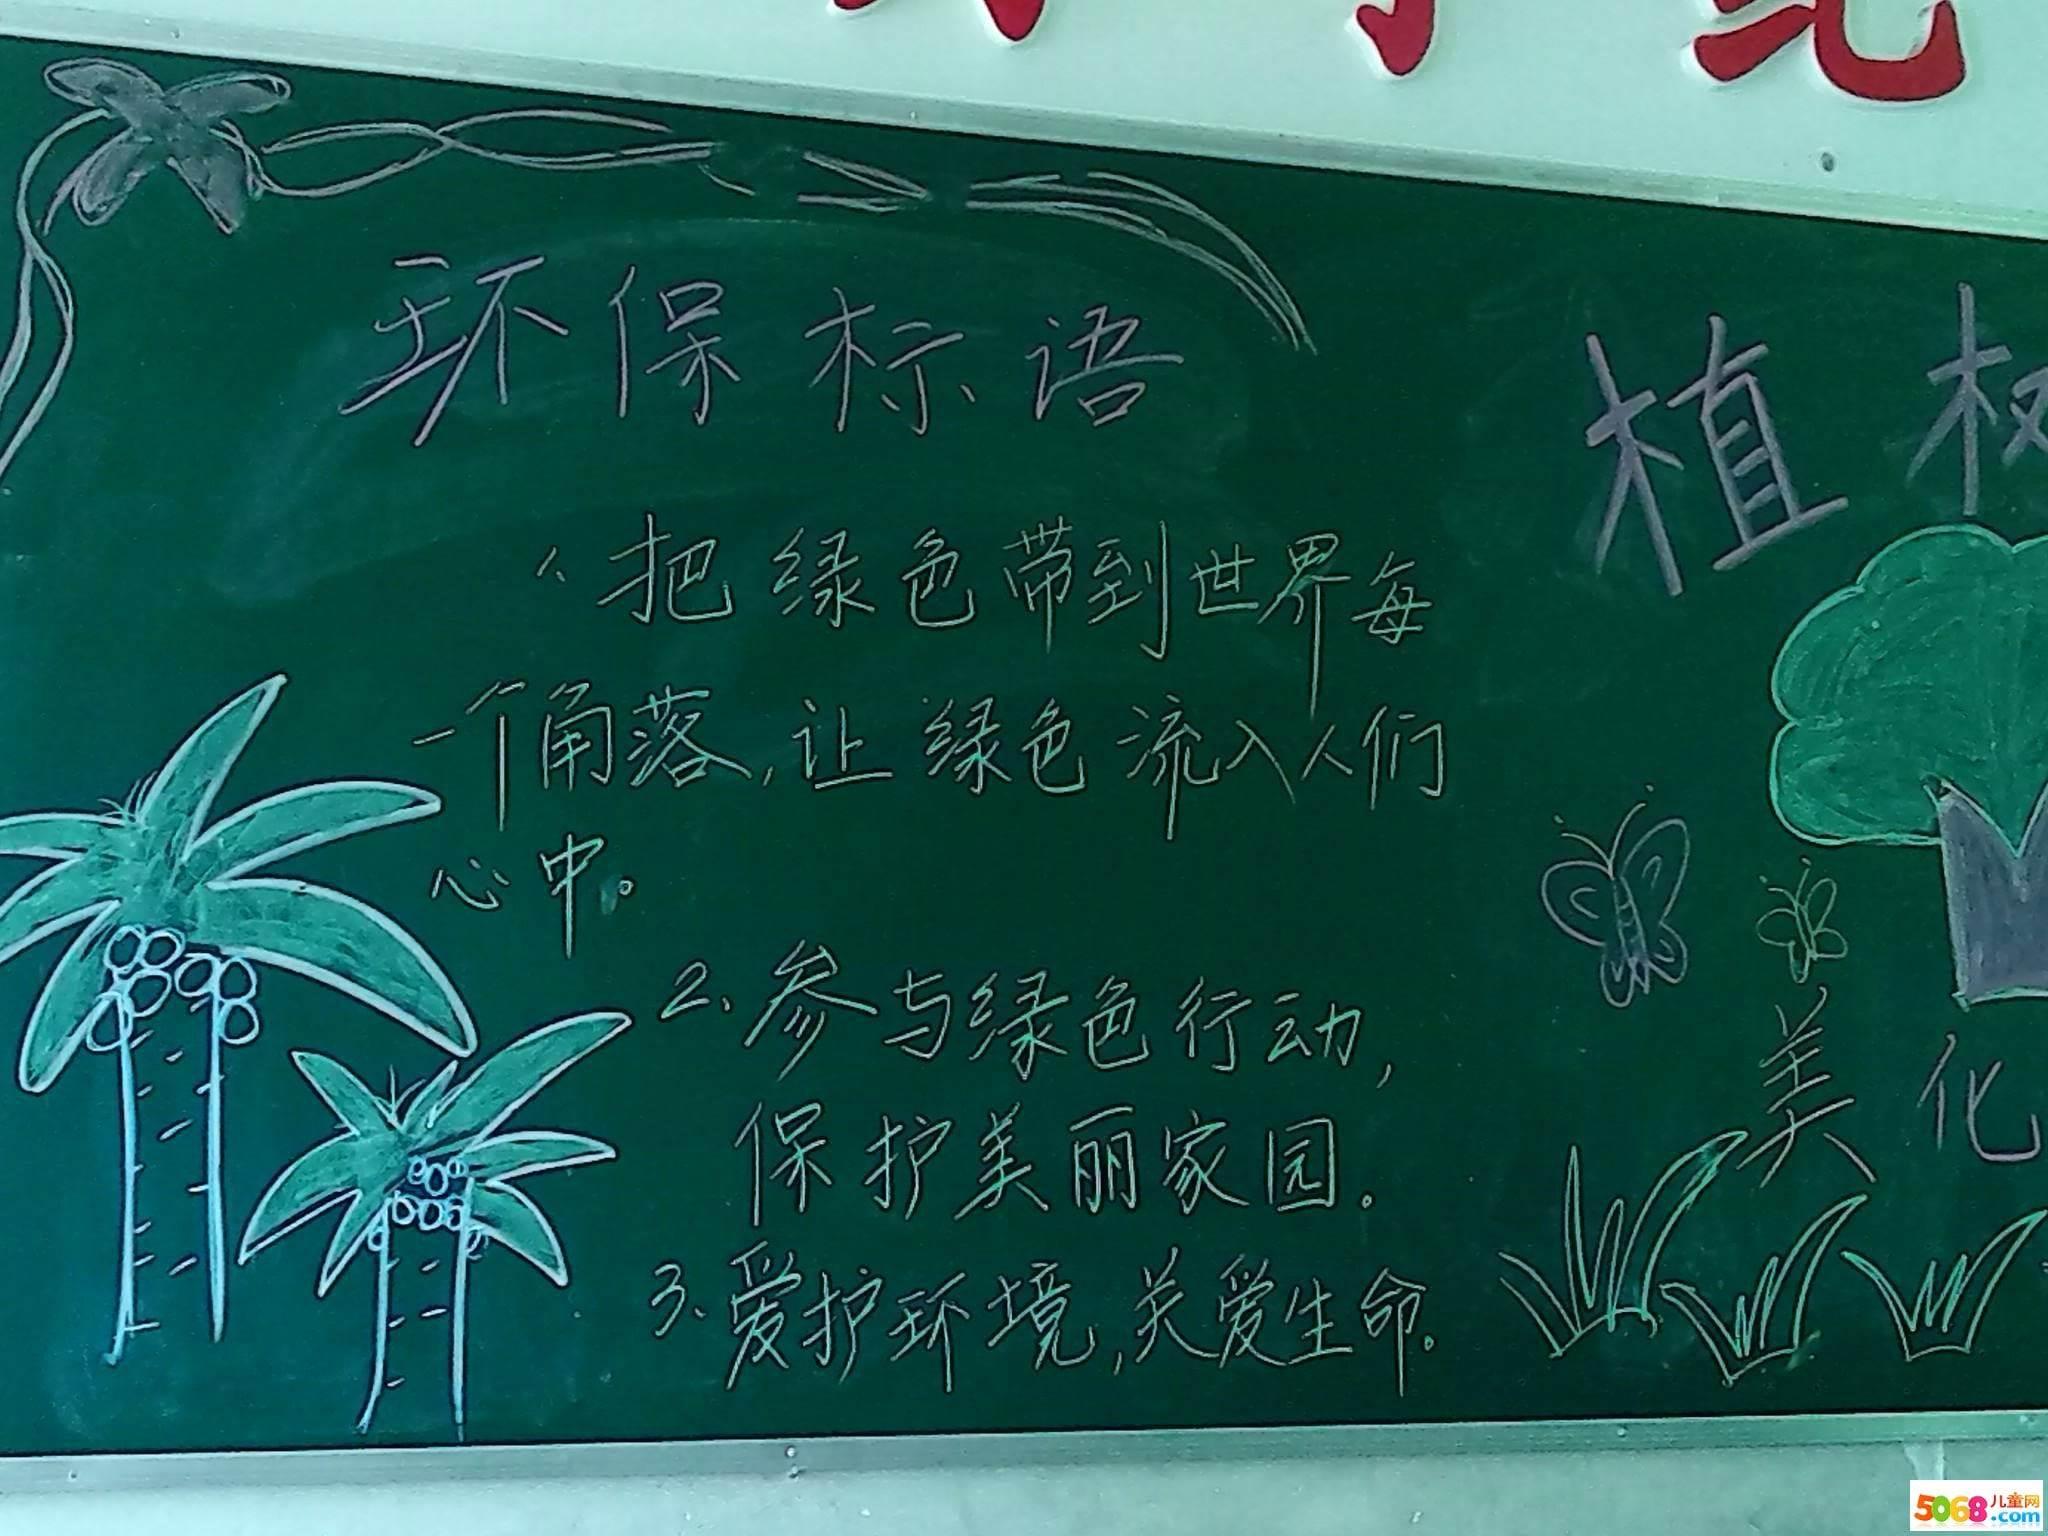 环保标语
1、把绿色带到世界每
一个角落,让绿色流入人们
心中。
2、参与绿色行动,
保护美丽家园。
3、爱护环境,关爱生命。
植树
美化
5068儿童网
.com